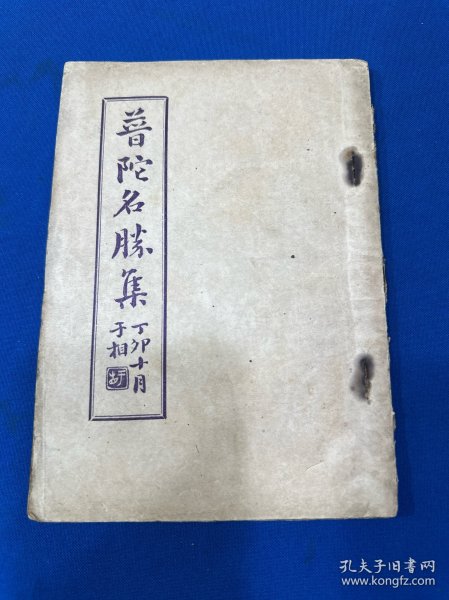 普陀名勝集
丁卯十月
于相
孔夫子旧书网
www.kongfz.com